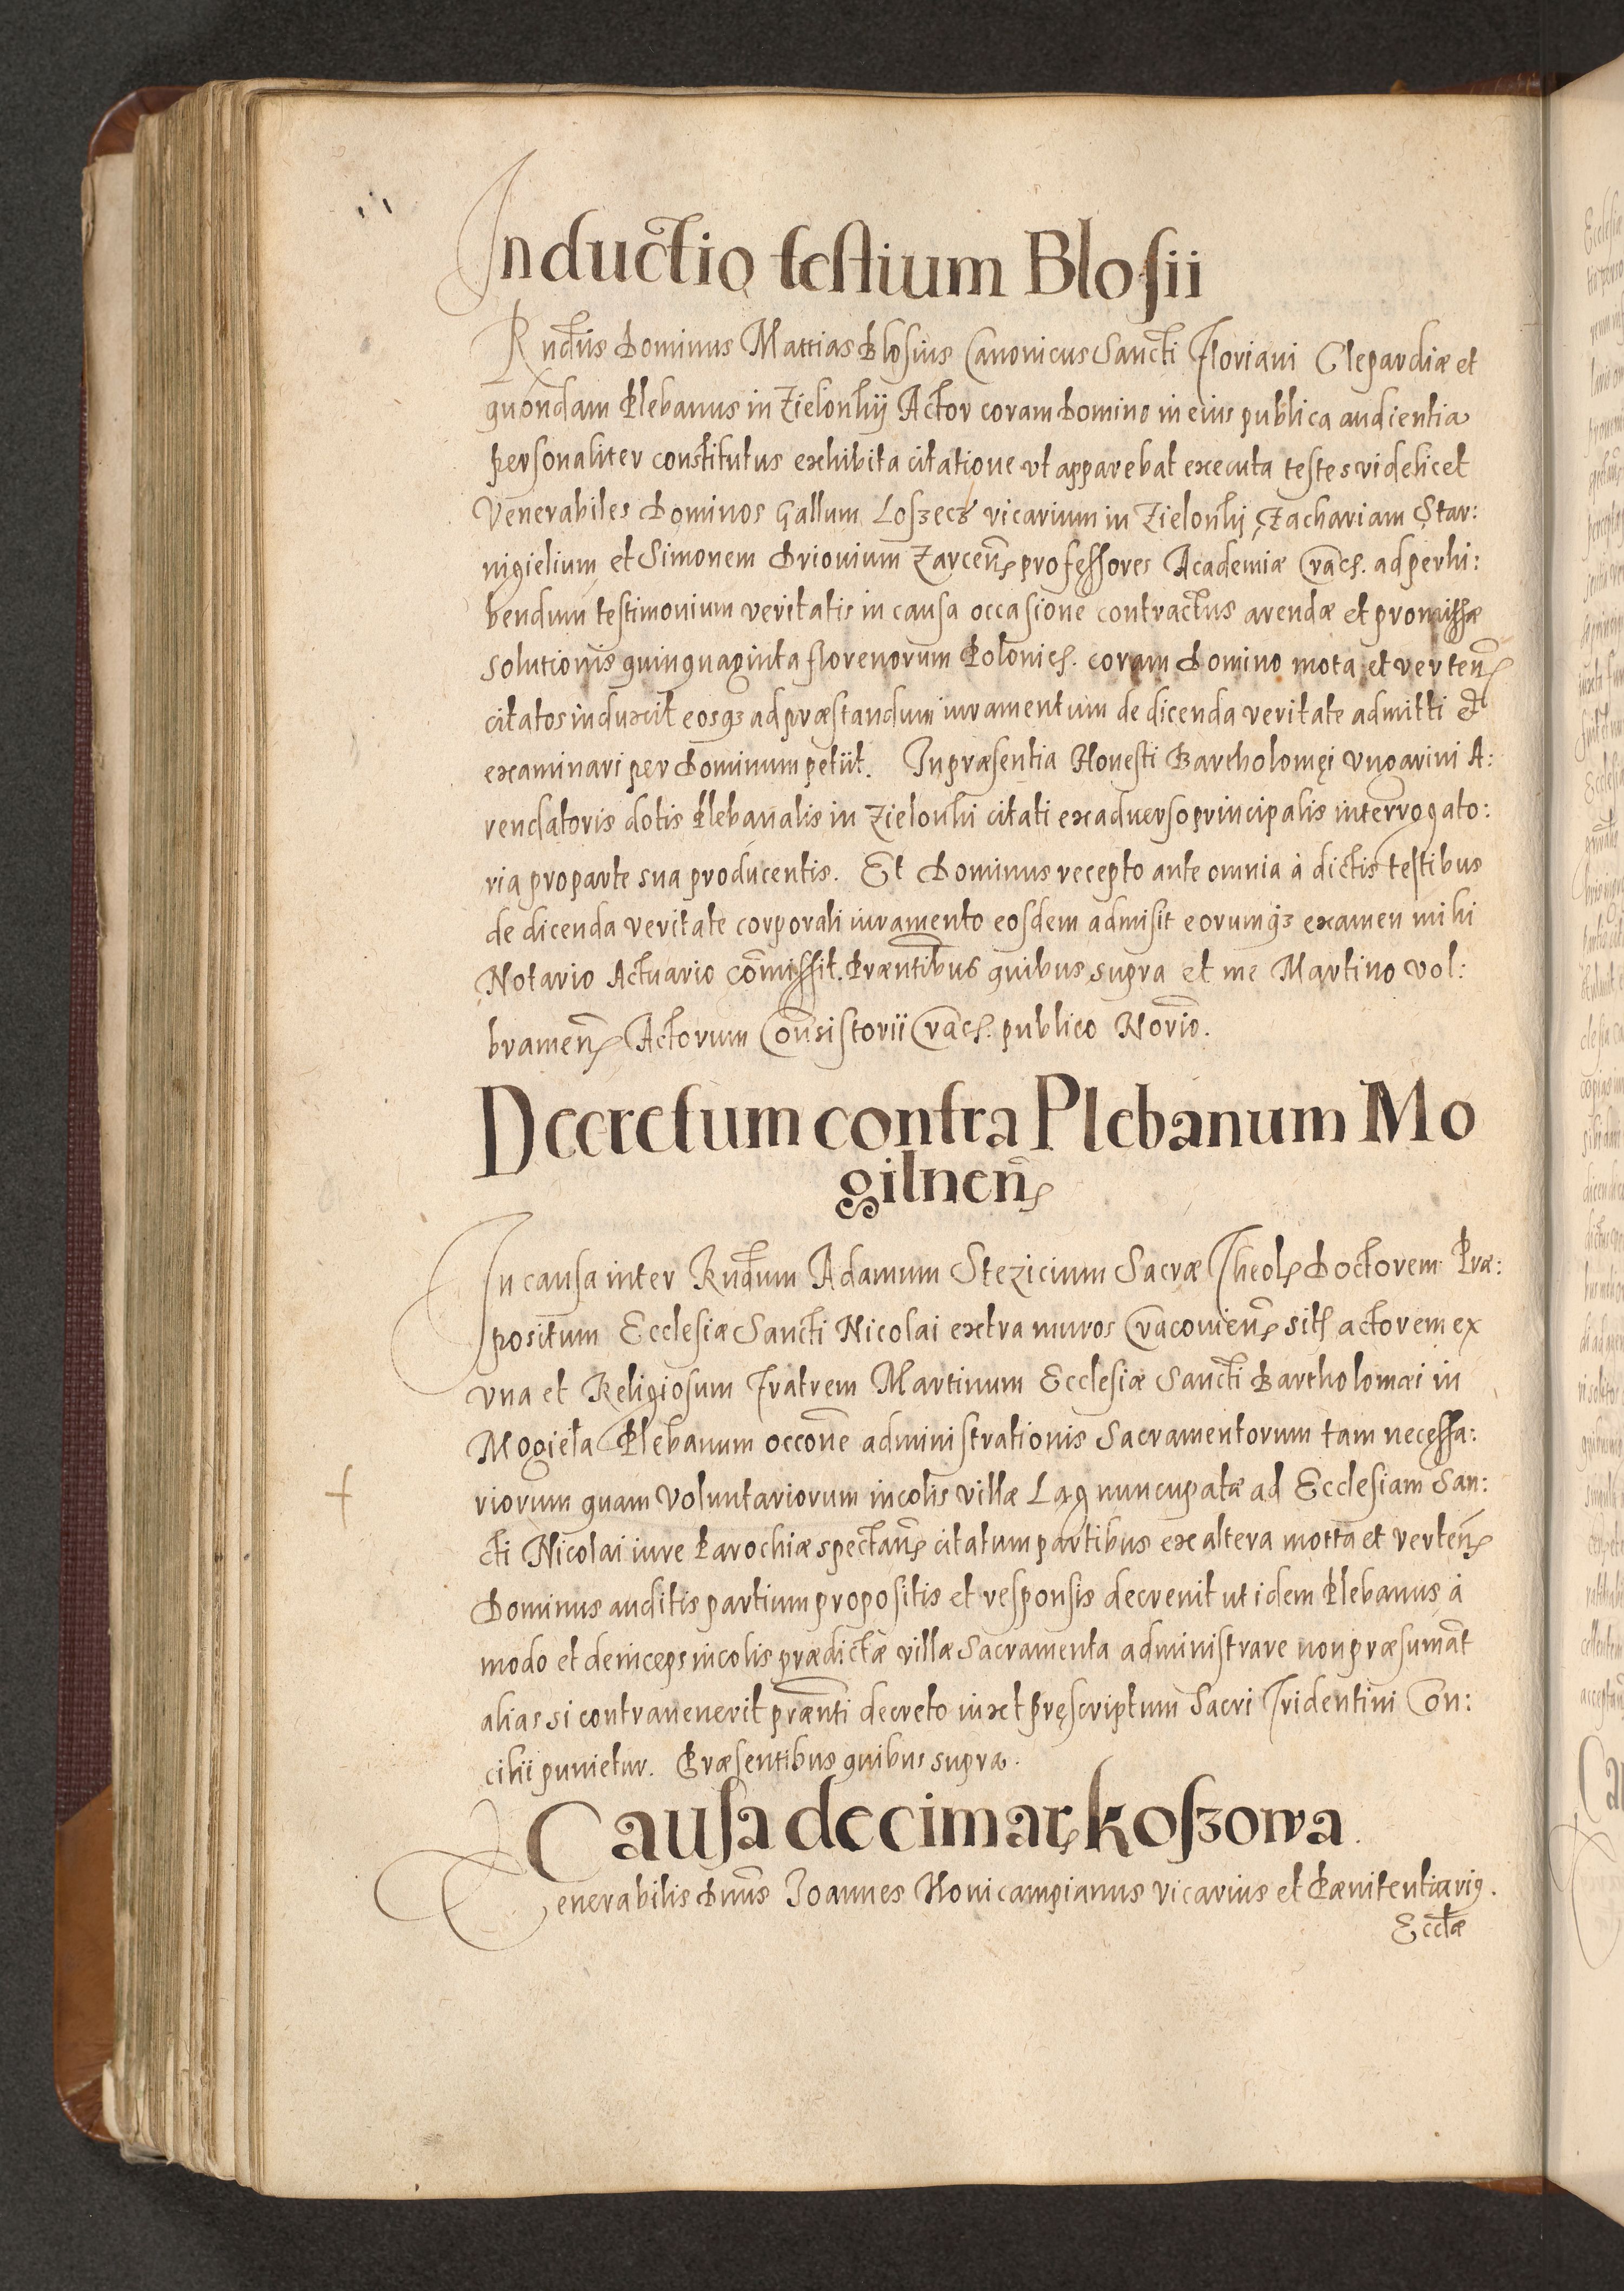 Inductio testium Blosii
Rndus Dominus Mattias Blosius Canonicus Sancti Floriani Clepardiæ et
quondam Plebanus in Zielonkij Actor coram Domino in eius publica audientia
personaliter constitutus exhibita citatione vt apparebat executa testes videlicet
Venerabiles Dominos Gallum Loszeck vicarium in Zielonkj, Zachariam Star:
nigielium et Simonem Driouium Zarcen. professores Academiæ Crac. ad perhi:
bendum testimonium veritatis in causa occasione contractus arendæ et promissæ
solutionis quinquaginta florenorum Polonic. coram Domino mota et verten.
citatos induxit eosq3 ad præstandum iuramentum de dicenda veritate admitti et
examinari per Dominum petiit. In præsentia Honesti Bartholomęi Vngarini A:
rendatoris dotis Plebanalis in Zielonki citati ex aduerso principalis interrogato:
ria pro parte sua producentis. Et Dominus recepto ante omnia à dictis testibus
de dicenda veritate corporali iuramento eosdem admisit eorumq3 examen mihi
Notario Actuario com̃issit. Præntibus quibus supra et me Martino Vol:
bramen. Actorum Consistorii Crac. publico Norio.
Decretum contra Plebanum Mo
gilnen.
In causa inter Rndum Adamum Stezicium Sacræ Theol. Doctorem Præ:
positum Ecclesiæ Sancti Nicolai extra muros Cracouien. sit. actorem ex
vna et Religiosum Fratrem Martinum Ecclesiæ Sancti Bartholomæi in
Mogieła Plebanum occone administrationis Sacramentorum tam necessa:
riorum quam Voluntariorum incolis villæ Łąg nuncupatæ ad Ecclesiam San:
cti Nicolai iure Parochiæ spectan. citatum partibus ex altera motta et verten.
Dominus auditis partium propositis et responsis decreuit ut idem Plebanus à
modo et deinceps incolis prædictæ villæ Sacramenta administrare non præsumat
alias si contrauenerit prænti decreto iuxt pręscriptum Sacri Tridentini Con:
cilii punietur. Præsentibus quibus supra.
Causa decimar. koszowa.
Venerabilis Dnus Joannes Nouicampianus vicarius et Pænitentiarius.
Ecclæ